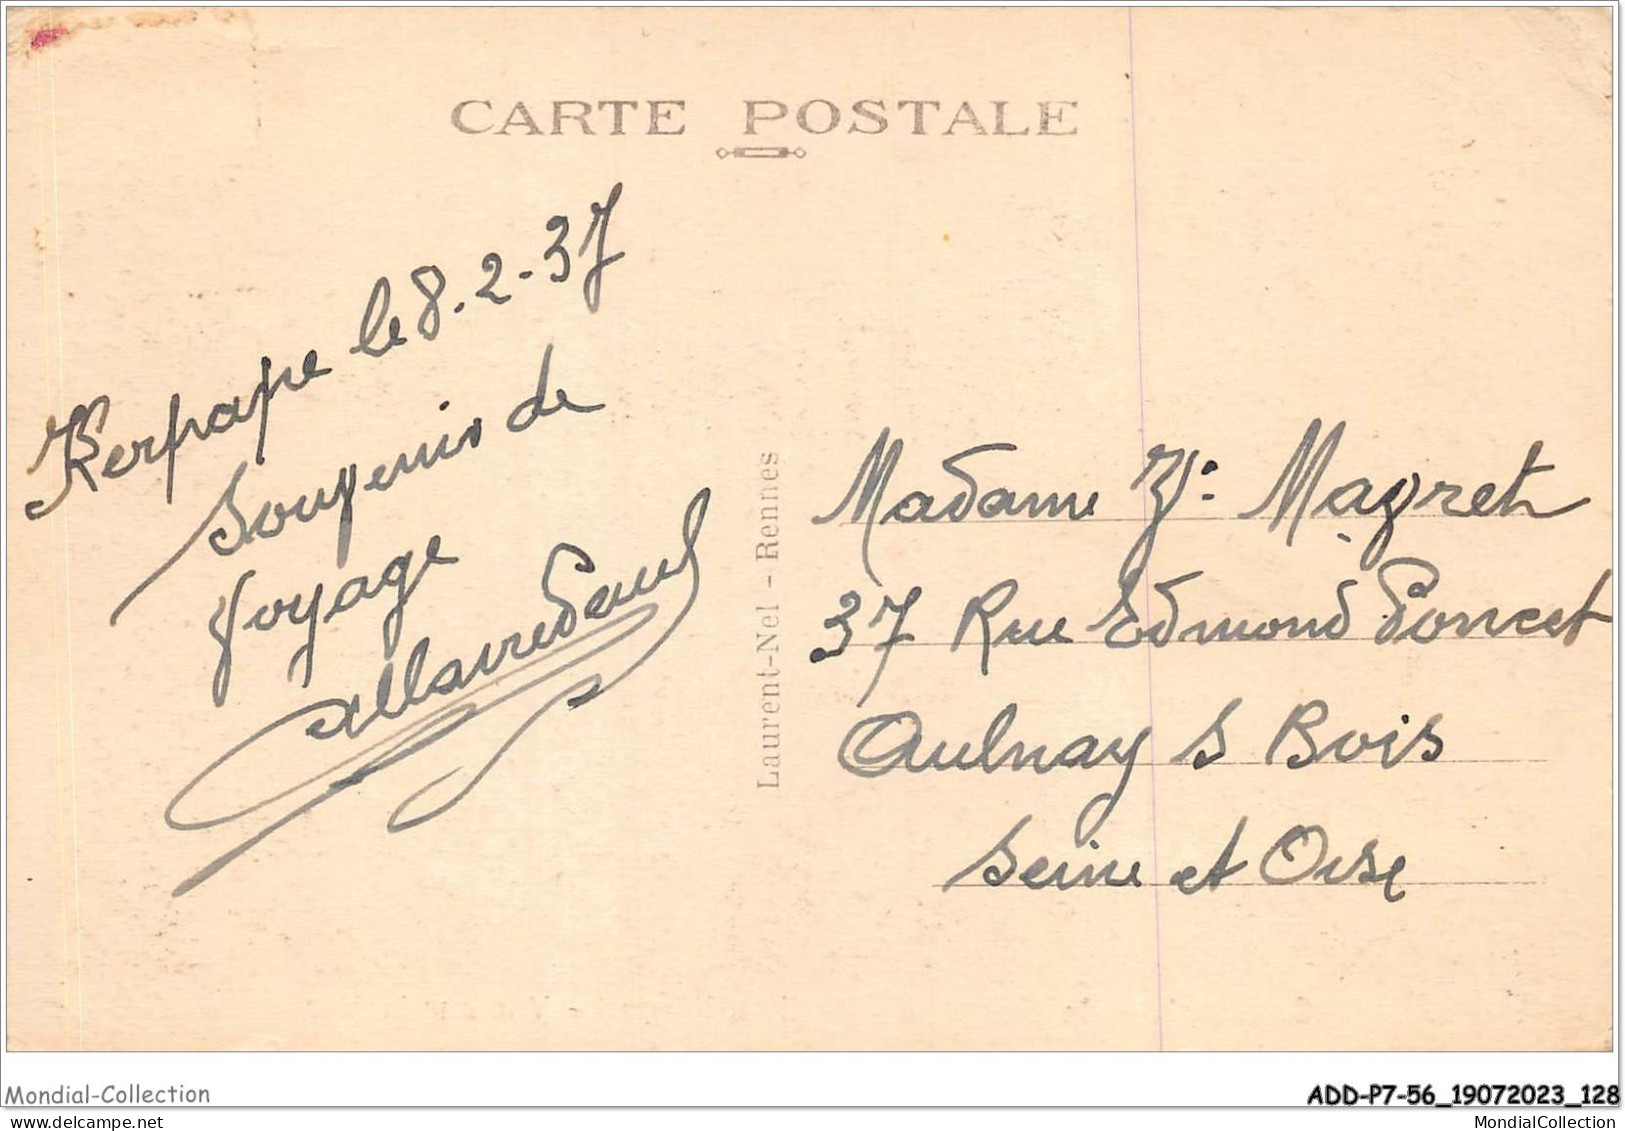 CARTE POSTALE
Kerpape le 8.2-37
Souvenir de
Voyage
Allaire Paul
Laurent-Nel - Rennes
Madame Magret
37 Rue Edmond Poncet
Aulnay s Bois
Seine et Oise
Mondial-Collection
ADD-P7-56_19072023_128
MondialCollection.com
MondialCollection